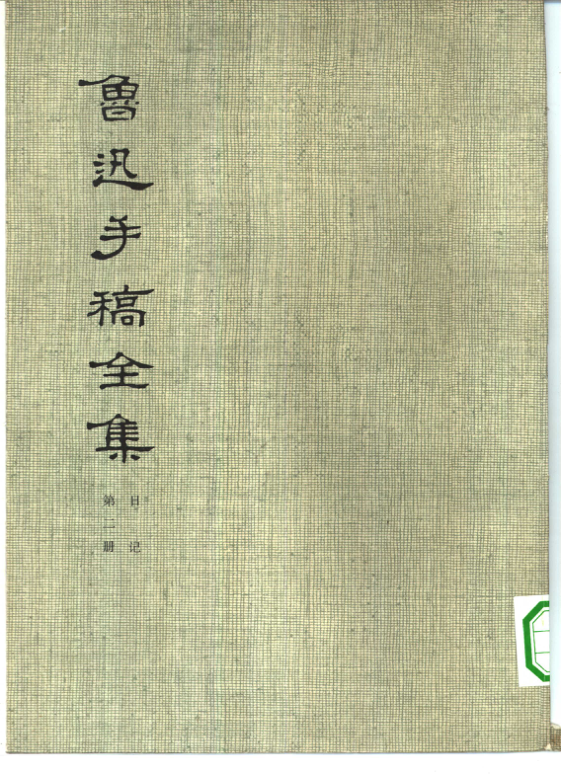 魯迅手稿全集
日记
第二册